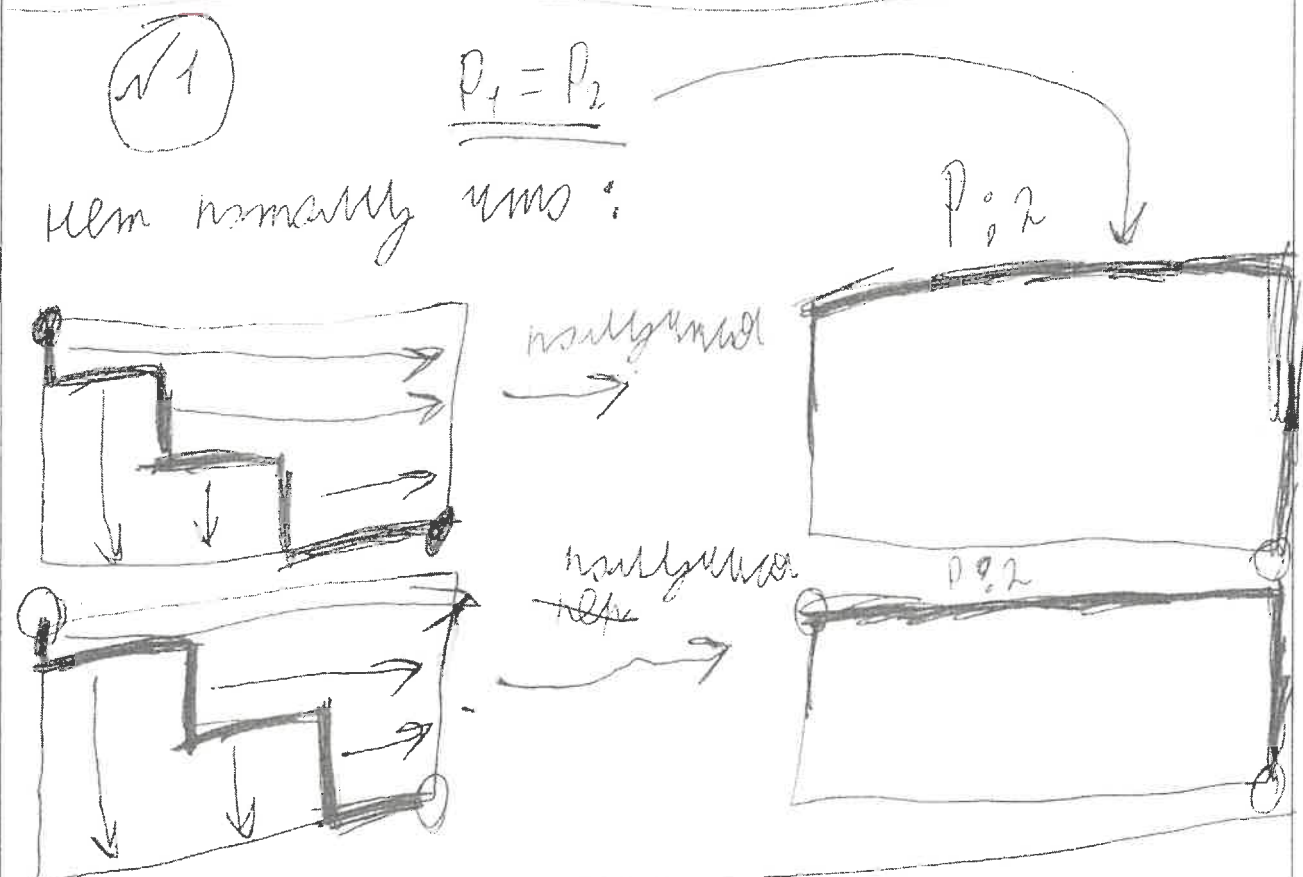 №1
P₁ = P₂
нет потому что:
P:2
получился
получился
P:2